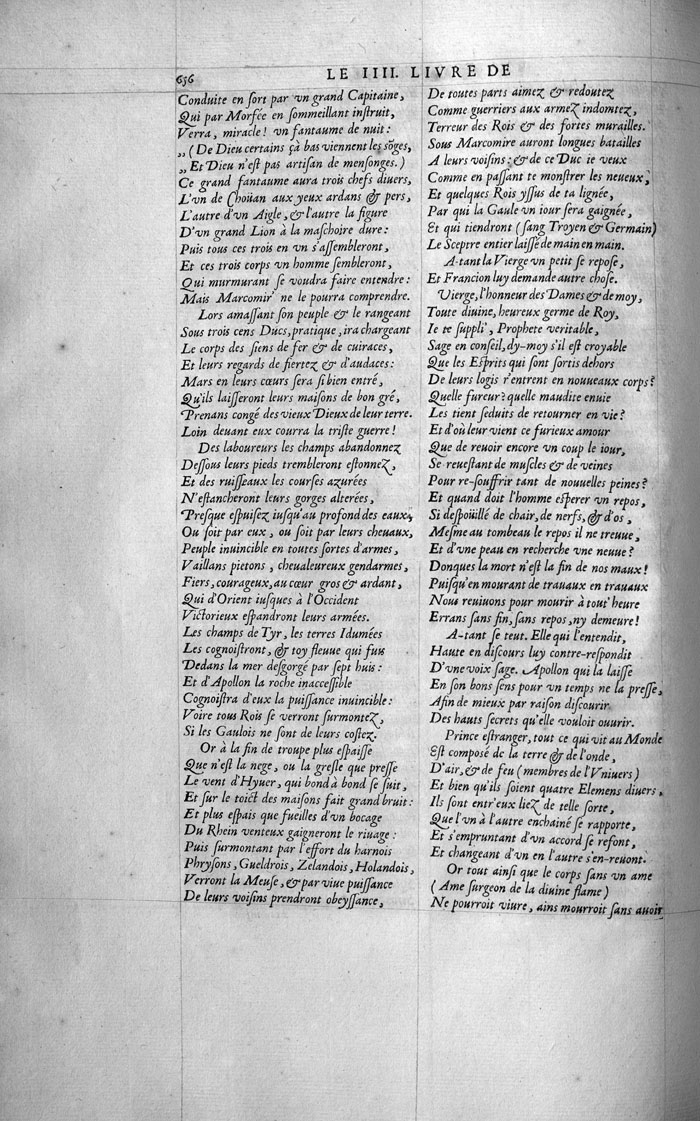 656
LE IIII. LIVRE DE
Conduite en ſort par vn grand Capitaine,
Qui par Morfée en ſommeillant inſtruit,
Verra, miracle! vn fantaume de nuit:
„ (De Dieu certains çà bas viennent les sõges,
„ Et Dieu n'eſt pas artiſan de menſonges.)
Ce grand fantaume aura trois chefs diuers,
L'vn de Choüan aux yeux ardans & pers,
L'autre d'vn Aigle, & l'autre la figure
D'vn grand Lion à la maſchoire dure:
Puis tous ces trois en vn s'aſſembleront,
Et ces trois corps vn homme ſembleront,
Qui murmurant ſe voudra faire entendre:
Mais Marcomir' ne le pourra comprendre.
Lors amaſſant ſon peuple & le rangeant
Sous trois cens Ducs, pratique, ira chargeant
Le corps des ſiens de fer & de cuiraces,
Et leurs regards de fiertez & d'audaces:
Mars en leurs cœurs ſera ſi bien entré,
Qu'ils laiſſeront leurs maiſons de bon gré,
Prenans congé des vieux Dieux de leur terre.
Loin deuant eux courra la triſte guerre!
Des laboureurs les champs abandonnez
Deſſous leurs pieds trembleront eſtonnez,
Et des ruiſſeaux les courſes azurées
N'eſtancheront leurs gorges alterées,
Preſque eſpuiſez iuſqu'au profond des eaux,
Ou ſoit par eux, ou ſoit par leurs cheuaux,
Peuple inuincible en toutes ſortes d'armes,
Vaillans pietons, cheualeureux gendarmes,
Fiers, courageux, au cœur gros & ardant,
Qui d'Orient iuſques à l'Occident
Victorieux eſpandront leurs armées.
Les champs de Tyr, les terres Idumées
Les cognoiſtront, & toy fleuue qui fuis
Dedans la mer deſgorgé par ſept huis:
Et d'Apollon la roche inacceſſible
Cognoiſtra d'eux la puiſſance inuincible:
Voire tous Rois ſe verront ſurmontez,
Si les Gaulois ne ſont de leurs coſtez.
Or à la fin de troupe plus eſpaiſſe
Que n'eſt la nege, ou la greſle que preſſe
Le vent d'Hyuer, qui bond à bond ſe ſuit,
Et ſur le toict des maiſons fait grand bruit:
Et plus eſpais que fueilles d'vn bocage
Du Rhein venteux gaigneront le riuage:
Puis ſurmontant par l'effort du harnois
Phryſons, Gueldrois, Zelandois, Holandois,
Verront la Meuſe, & par viue puiſſance
De leurs voiſins prendront obeyſſance,
De toutes parts aimez & redoutez
Comme guerriers aux armez indomtez,
Terreur des Rois & des fortes murailles.
Sous Marcomire auront longues batailles
A leurs voiſins: & de ce Duc ie veux
Comme en paſſant te monſtrer les neueux,
Et quelques Rois yſſus de ta lignée,
Par qui la Gaule vn iour ſera gaignée,
Et qui tiendront (ſang Troyen & Germain)
Le Sceptre entier laiſſé de main en main.
A-tant la Vierge vn petit ſe repoſe,
Et Francion luy demande autre choſe.
Vierge, l'honneur des Dames & de moy,
Toute diuine, heureux germe de Roy,
Ie te ſuppli', Prophete veritable,
Sage en conſeil, dy-moy s'il eſt croyable
Que les Eſprits qui ſont ſortis dehors
De leurs logis r'entrent en nouueaux corps?
Quelle fureur? quelle maudite enuie
Les tient ſeduits de retourner en vie?
Et d'où leur vient ce furieux amour
Que de reuoir encore vn coup le iour,
Se reueſtant de muſcles & de veines
Pour re-ſouffrir tant de nouuelles peines?
Et quand doit l'homme eſperer vn repos,
Si deſpoüillé de chair, de nerfs, & d'os,
Meſme au tombeau le repos il ne treuue,
Et d'vne peau en recherche vne neuue?
Donques la mort n'eſt la fin de nos maux!
Puiſqu'en mourant de trauaux en trauaux
Nous reuiuons pour mourir à tout'heure
Errans ſans fin, ſans repos, ny demeure!
A-tant ſe teut. Elle qui l'entendit,
Haute en diſcours luy contre-reſpondit
D'vne voix ſage. Apollon qui la laiſſe
En ſon bons ſens pour vn temps ne la preſſe,
Afin de mieux par raiſon diſcourir
Des hauts ſecrets qu'elle vouloit ouurir.
Prince eſtranger, tout ce qui vit au Monde
Eſt compoſé de la terre & de l'onde,
D'air, & de feu (membres de l'Vniuers)
Et bien qu'ils ſoient quatre Elemens diuers,
Ils ſont entr'eux liez de telle ſorte,
Que l'vn à l'autre enchaiſné ſe rapporte,
Et s'empruntant d'vn accord ſe refont,
Et changeant d'vn en l'autre s'en-reuont.
Or tout ainſi que le corps ſans vn ame
(Ame ſurgeon de la diuine flame)
Ne pourroit viure, ains mourroit ſans auoir